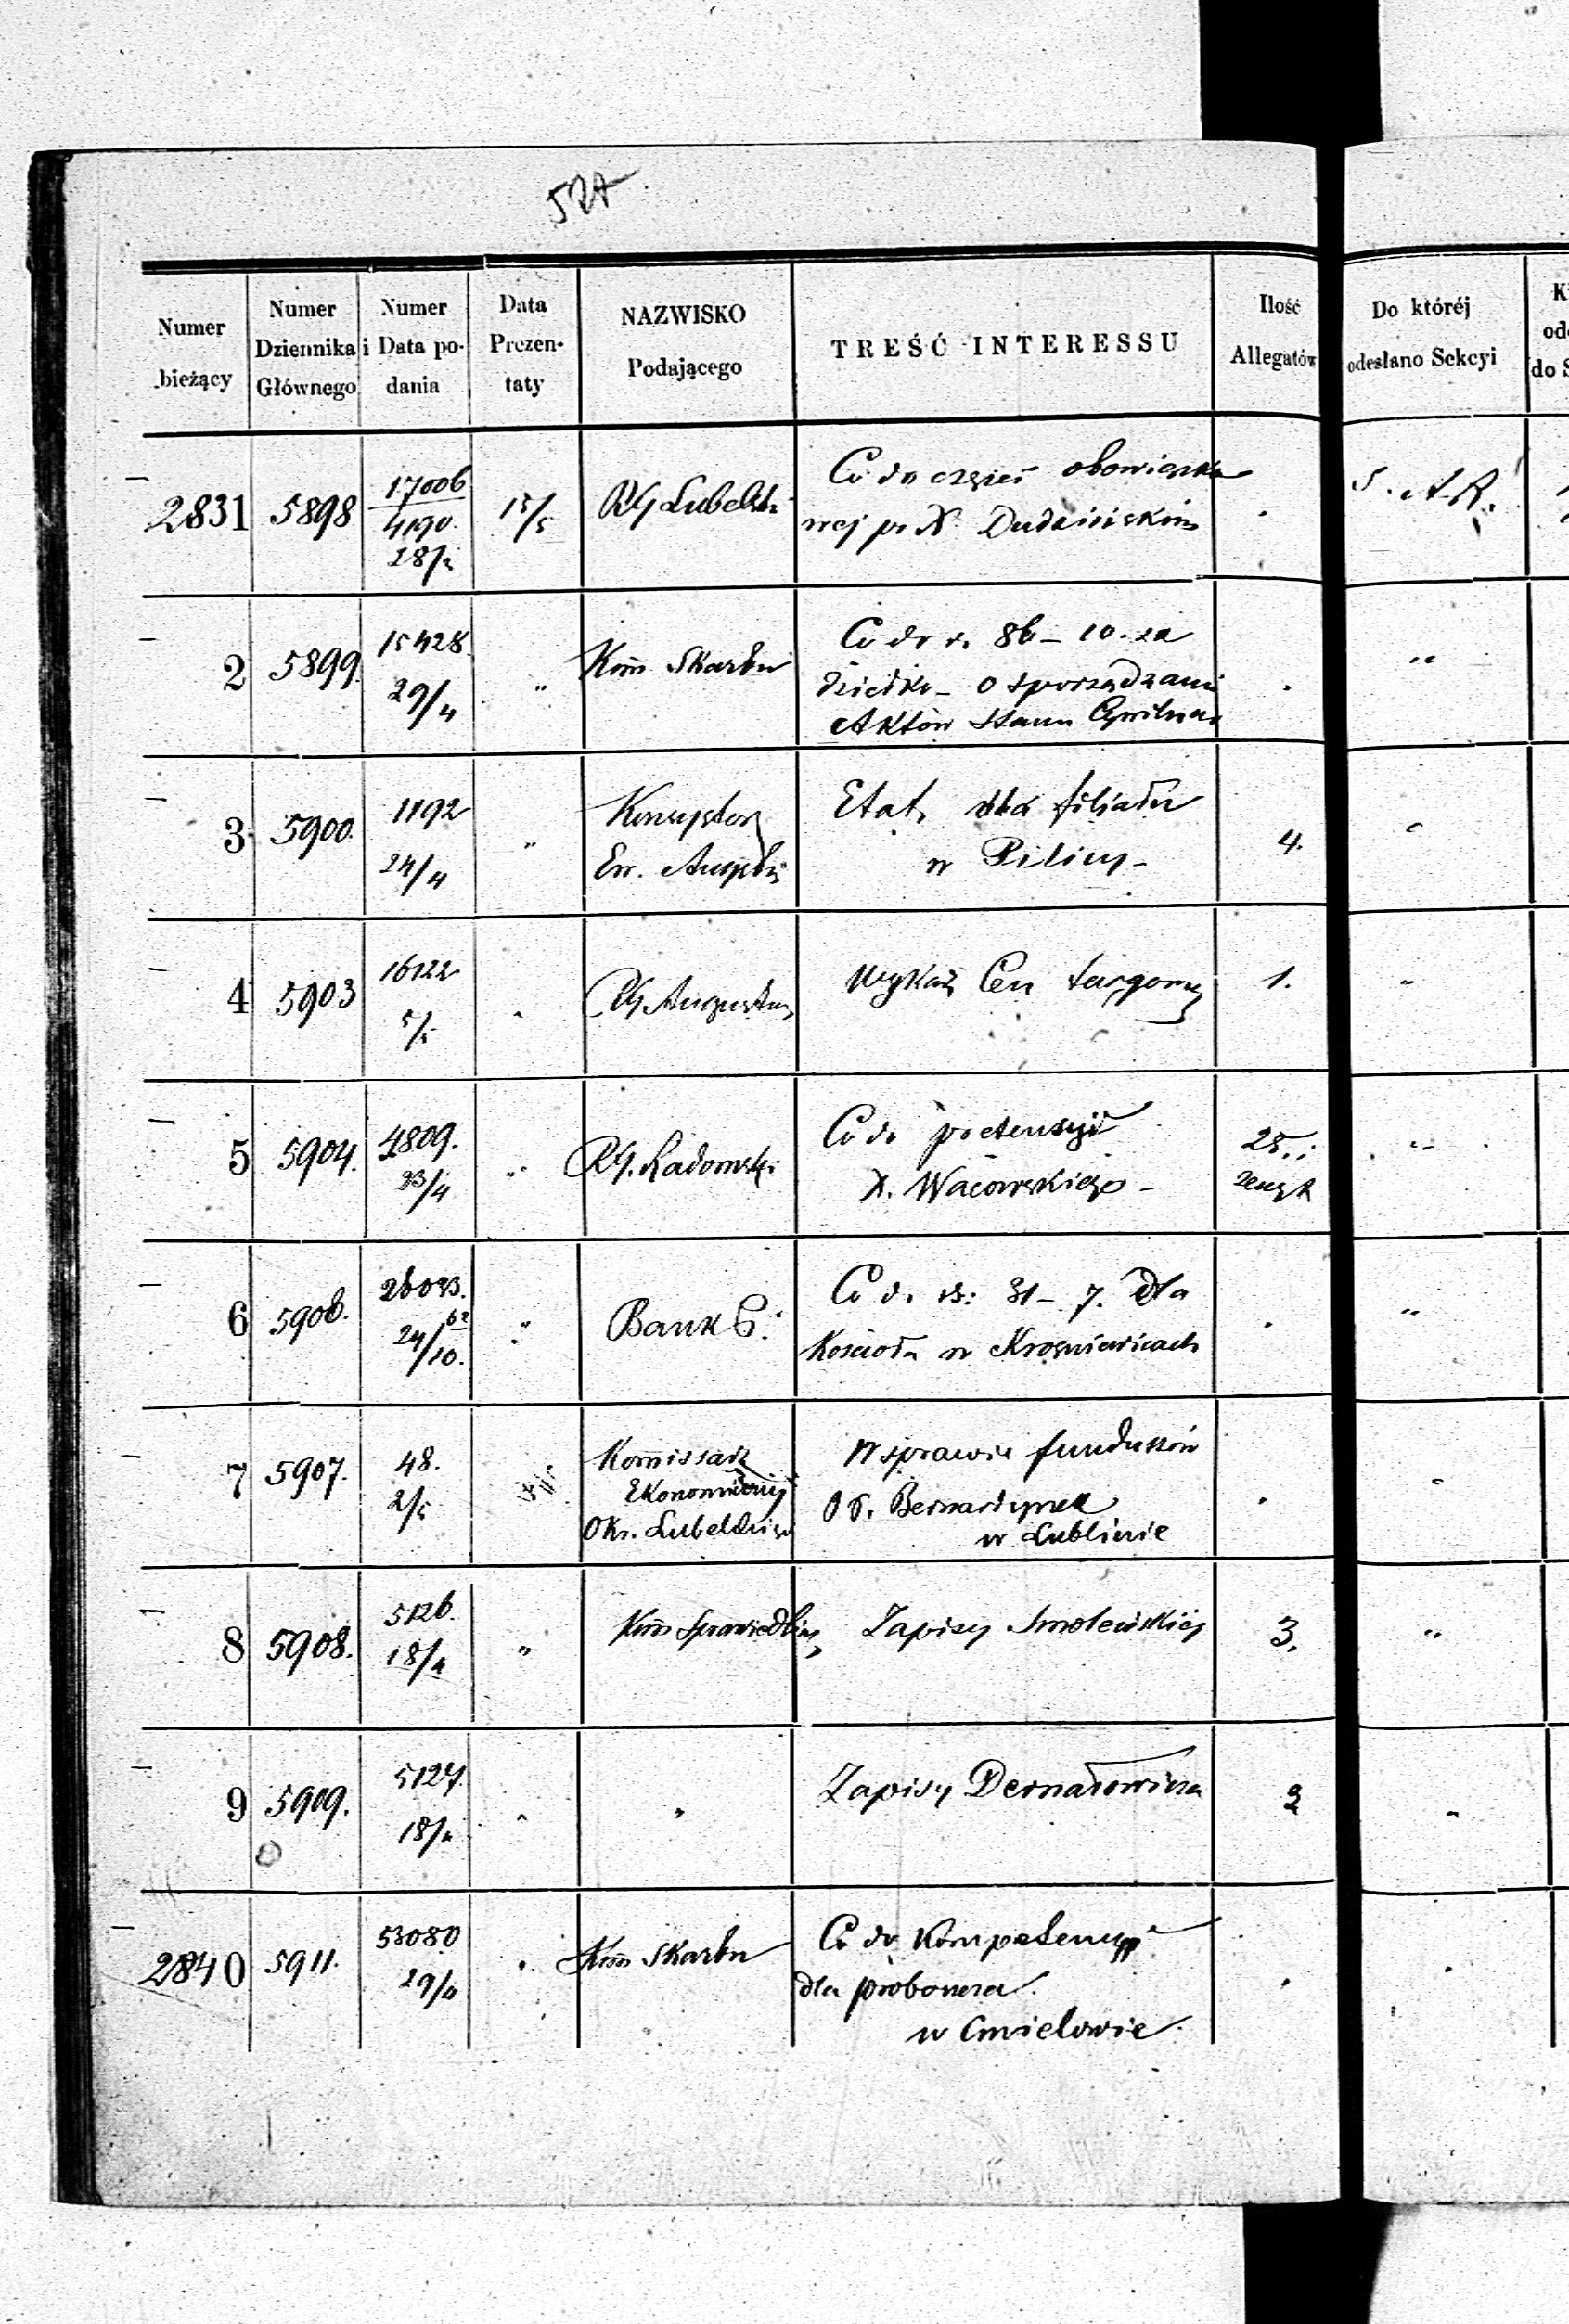 527
Numer bieżący
Numer Dziennika Głównego
Numer i Data podania
Data Prezentaty
NAZWISKO Podającego
TREŚĆ INTERESSU
Ilość Allegatów
Do któréj odesłano Sekcyi
2831 5898 17006 15/5 RG Lubelski Co do części obowiązko
4190. wej pr X. . S. A. R.
28/2
2 5899. 15428 " Kom̄ Skarbu Co do rs. 86 – 10. za
29/4 o sporządzanie . "
Aktów Stanu Cywilnego
3 5900. 1192 " Konsystorz Etat dla filiału 4. "
24/4 Ew. Augsbu w Pilicy –
4 5903 16122 " RG Augustow Wykaz Cen targowych 1. "
5/5
5 5904. 4809. " RG. Radomski Co do pretensyi 25. i "
23/4 X. Wacowskiego – zeszyt
6 5906. 26033. " Bank P. Co do rs: 31 – 7. dla . "
24/10. 62 Kościoła w Krośniewicach
7 5907. 48. Kom̄issarz W sprawie funduszów . "
2/5 Ekonomiczny OO. Bernardynek
Okr. Lubelskiego w Lublinie
8 5908. 5126. " Kom̄ Sprawiedliw Zapisy Smoleńskiej 3. "
18/4
9 5909. 5127. " " Zapisy Dernałowicza 2 "
18/4
2840 5911. 53080 " Kom̄ Skarbu Co do Kompetencyi . "
29/4 dla proboszcza
w Cmielowie